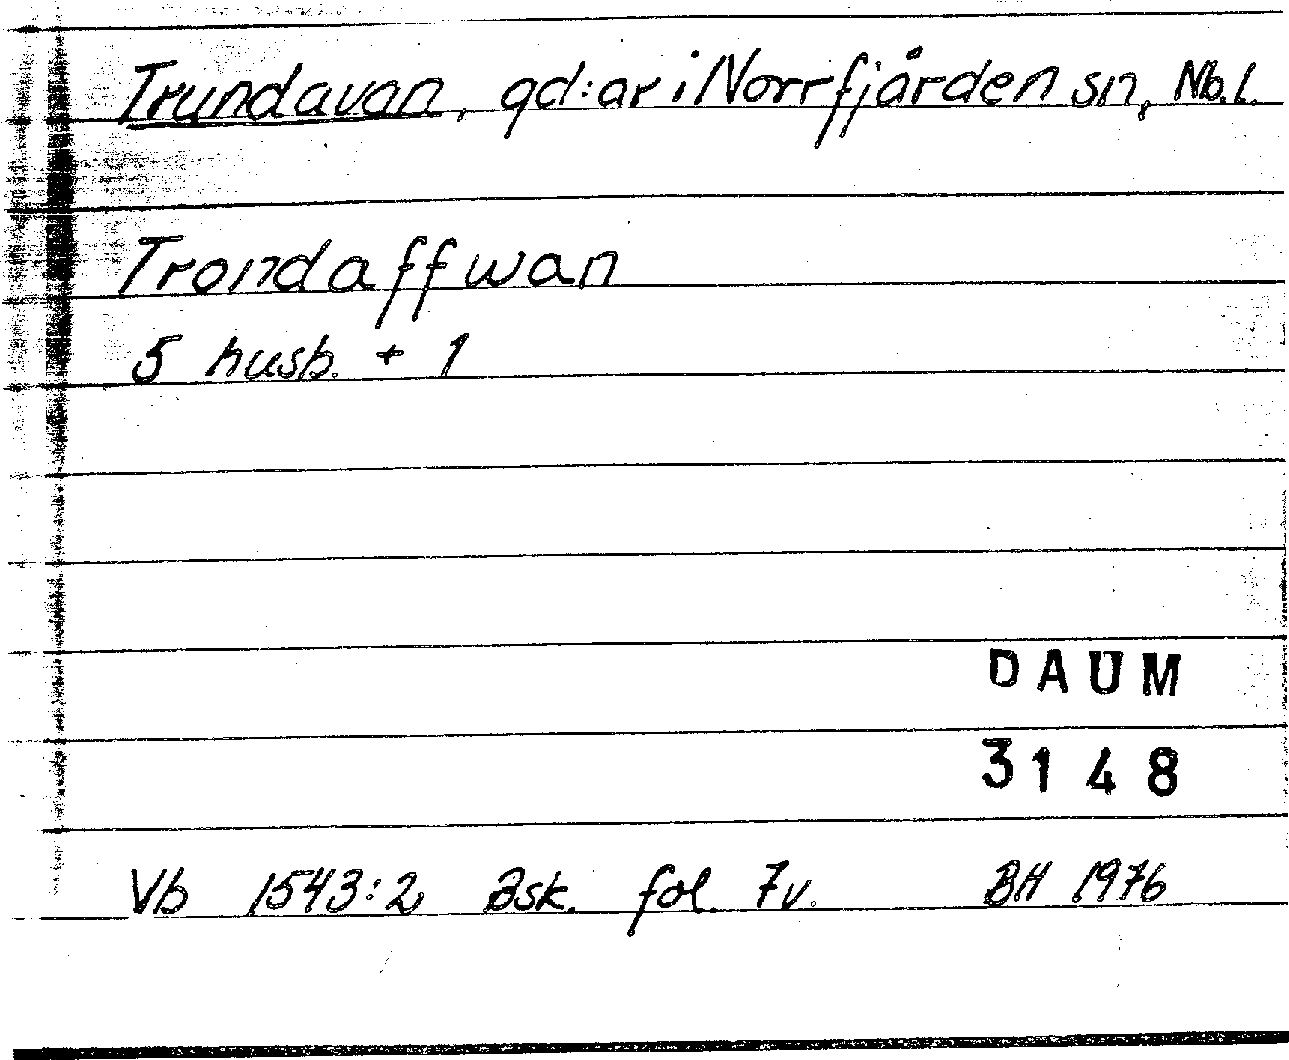 Trundavan, gd:ar i Norrfjärden sn, Nb.l.
Trondaffwan
5 husb. + 1
DAUM
3148
Vb 1543:2 Åsk. fol. 7v. BH 1976